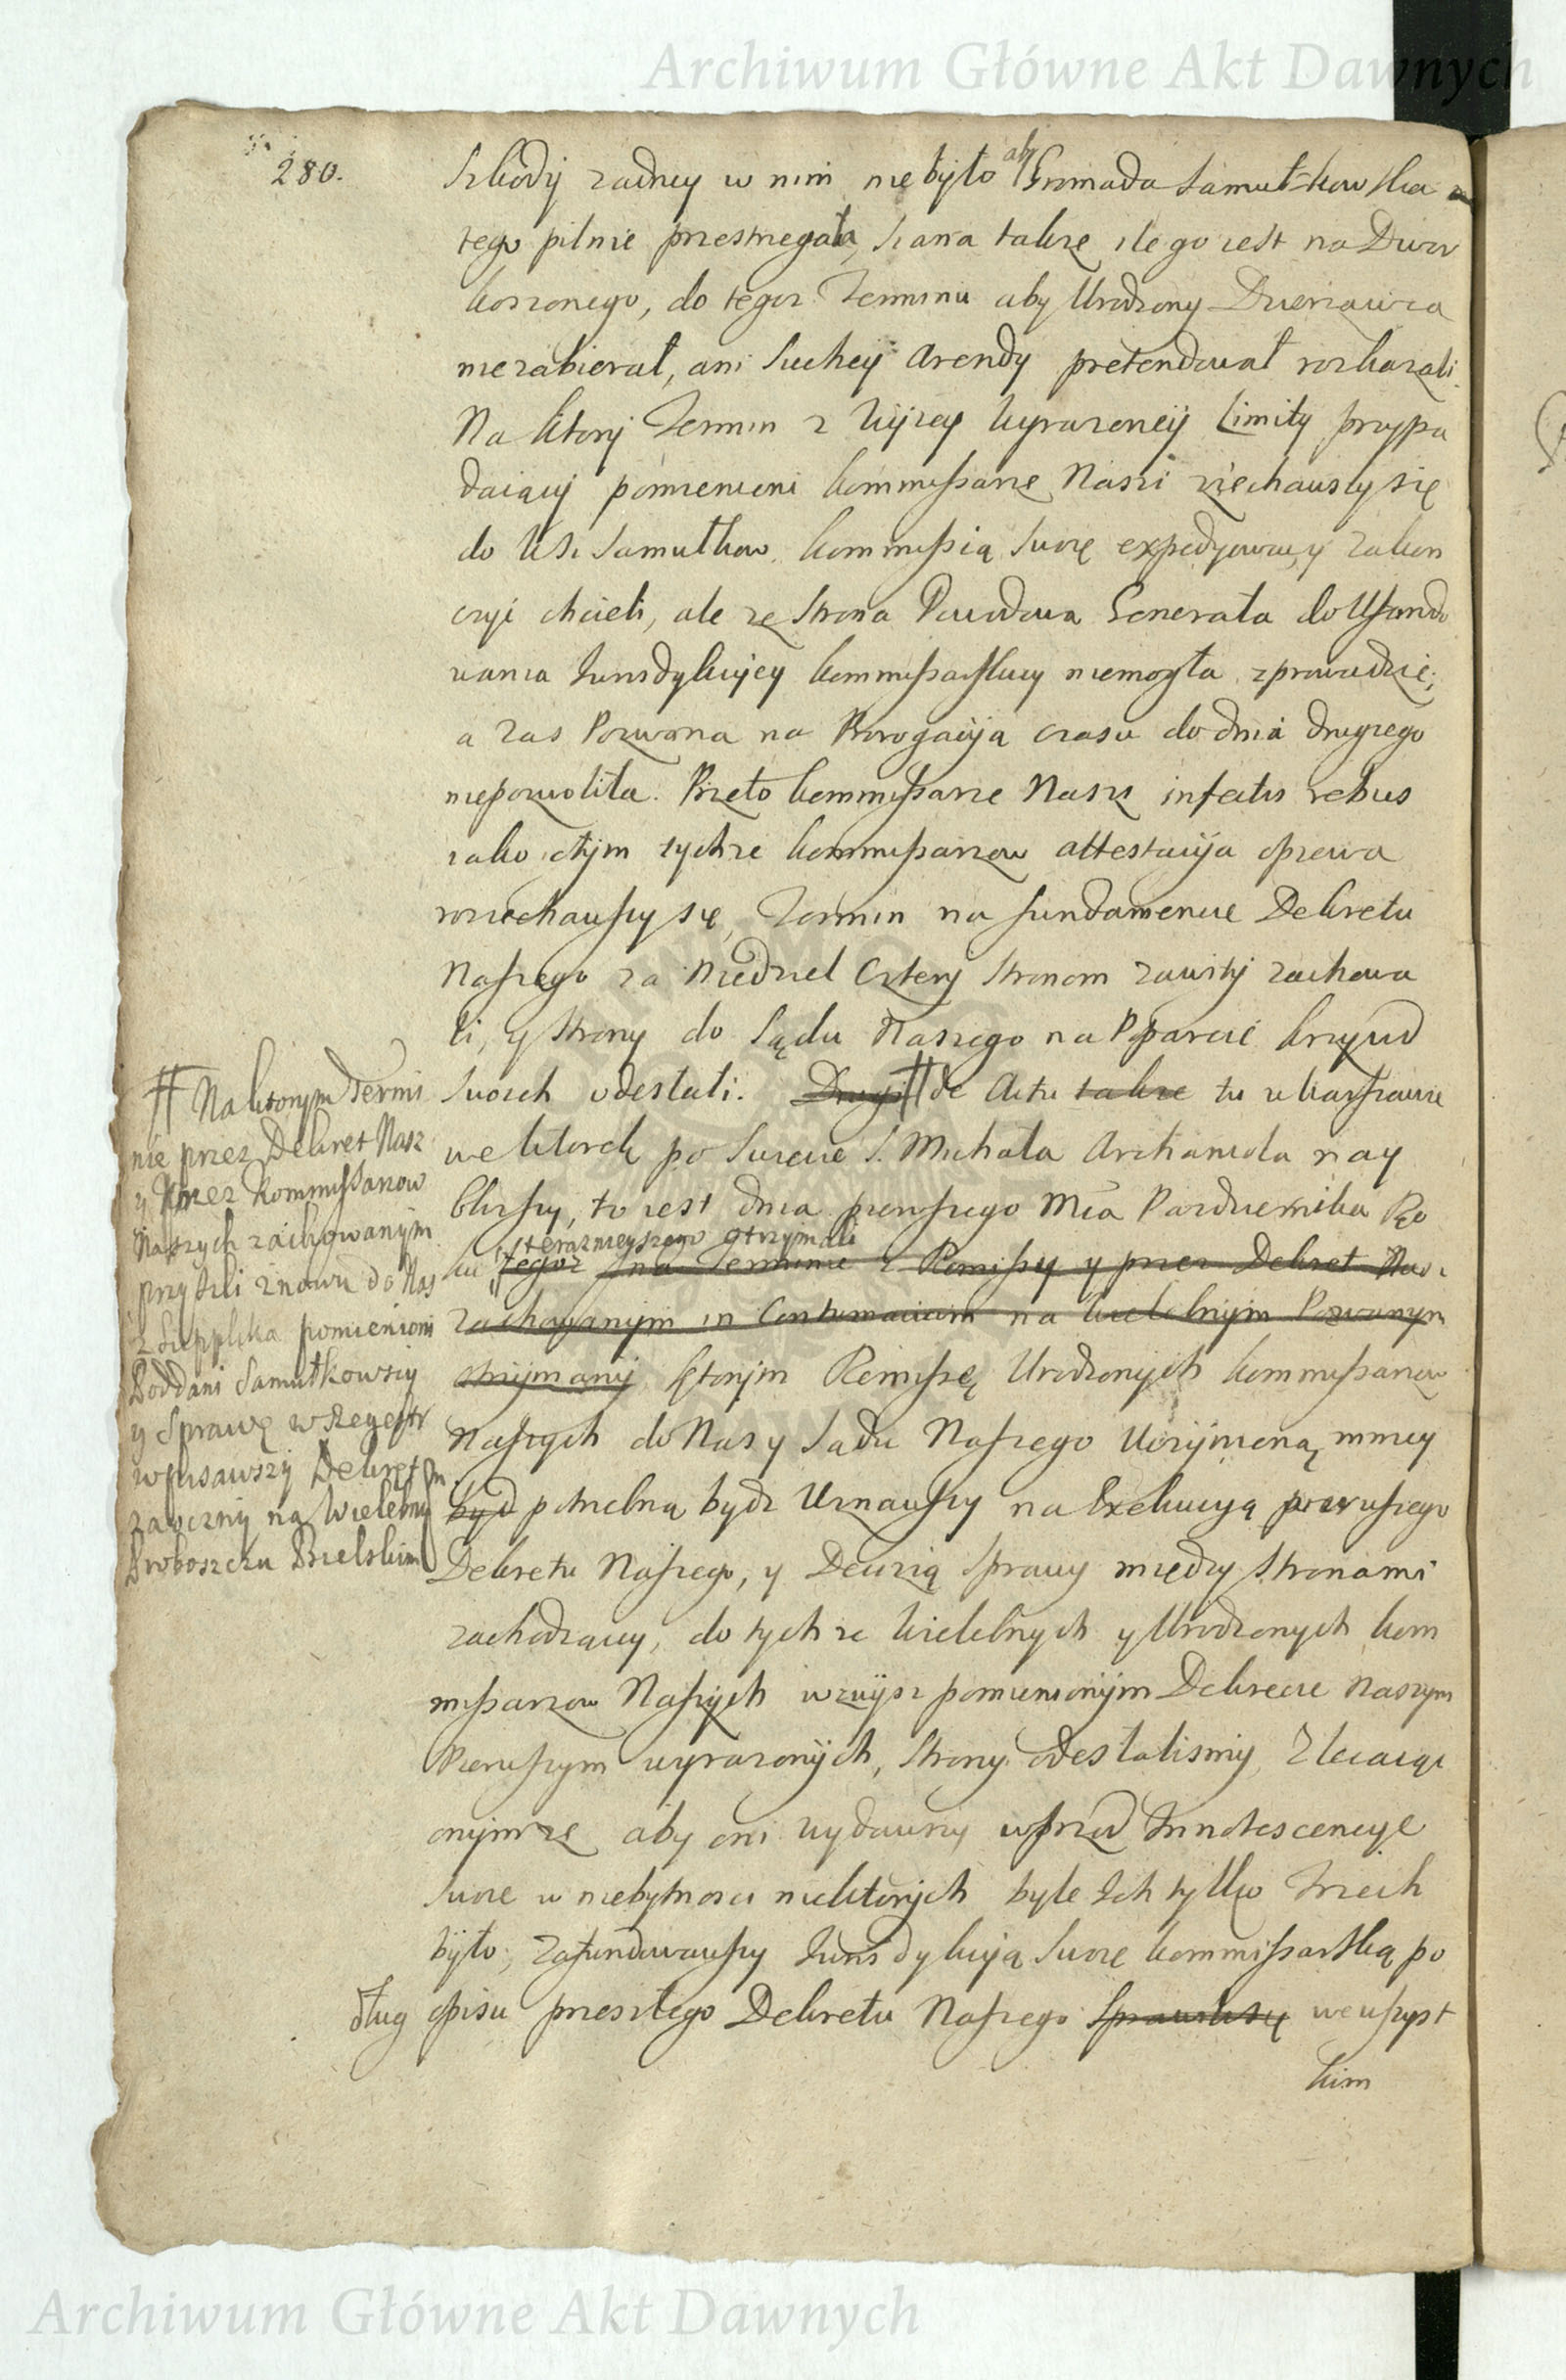 Archiwum Główne Akt Dawnych
280.
Szkody zadney w nim nie było aby Gromada Samułkowska
tego pilnie przestrzegała, siana także ile go iest na Dwor
koszonego, do tegoz Terminu aby Urodzony Dzierzawca
niezabierał, ani Suchey Arendy pretendował rozkazali.
Na ktory Termin z Wyzey Wyrazoneij Limity przypa
daiący pomienieni kommissarze Naszi ziechawszy się
do Wsi Samułkow kommissią swoię expedyować y zakon
czyć chcieli, ale ze Strona Powodowa Generała do Ufundo
wania Jurisdykcyey kommissarskiey niemogła zprowadzić,
a zas Pozwana na Prorogacyja czasu do dnia drugiego
niepozwoliła. Przeto kommissarze Naszi infectis rebus
iako o tym tychze kommissarzow attestacyja opiewa
roziechawszy się, Termin na fundamencie Dekretu
Naszego za Niedziel Cztery Stronom zawity zachowa
li, y Strony do Sądu Naszego na Poparcie krzywd
swoich odesłali. Drugi # de Actu także tu w Warszawie
we Wtorek po Swięcie S. Michała Archanioła nay
blizszy, to iest dnia pierwszego Mca Pazdziernika Ro
ku teraznieyszego otrzymali
tegoz na Terminie z Remissy y przez Dekret Nasz
zachowanym in Contumaciam na Wielebnym Pozwanym
otrzymany, ktorym Remissę Urodzonych kommissarzow
Naszych do Nas y Sadu Naszego Uczynioną mniey
byd potrzebną bydz Uznawszy na Exekucyą pierwszego
Dekretu Naszego, y Decizią Sprawy między Stronami
zachodzący, do tychze Wielebnych y Urodzonych kom
missarzow Naszych wzwysz pomienionym Dekrecie Naszym
Pierwszym wyrazonych, Strony odesłalismy, Zlecaiąc
onymze aby oni wydawszy wprzod Innotescencye
swoie w niebytnosci niektorych byle Ich tylko Trzech
było, zafundowawszy Jurisdykcyą swoię kommissarską po
dług opisu przeszłego Dekretu Naszego Sprawę we wszyst
kim
# Na ktorym Termi
nie przez Dekret Nasz
y Przez Kommissarzow
Naszych zachowanym
przyszli znowu do Nas
z Suppliką pomienioni
Poddani Samułkowscy
y Sprawę w Regestr
wpisawszy Dekret
zaoczny na Wielebnym
Proboszczu Bielskim
Archiwum Główne Akt Dawnych